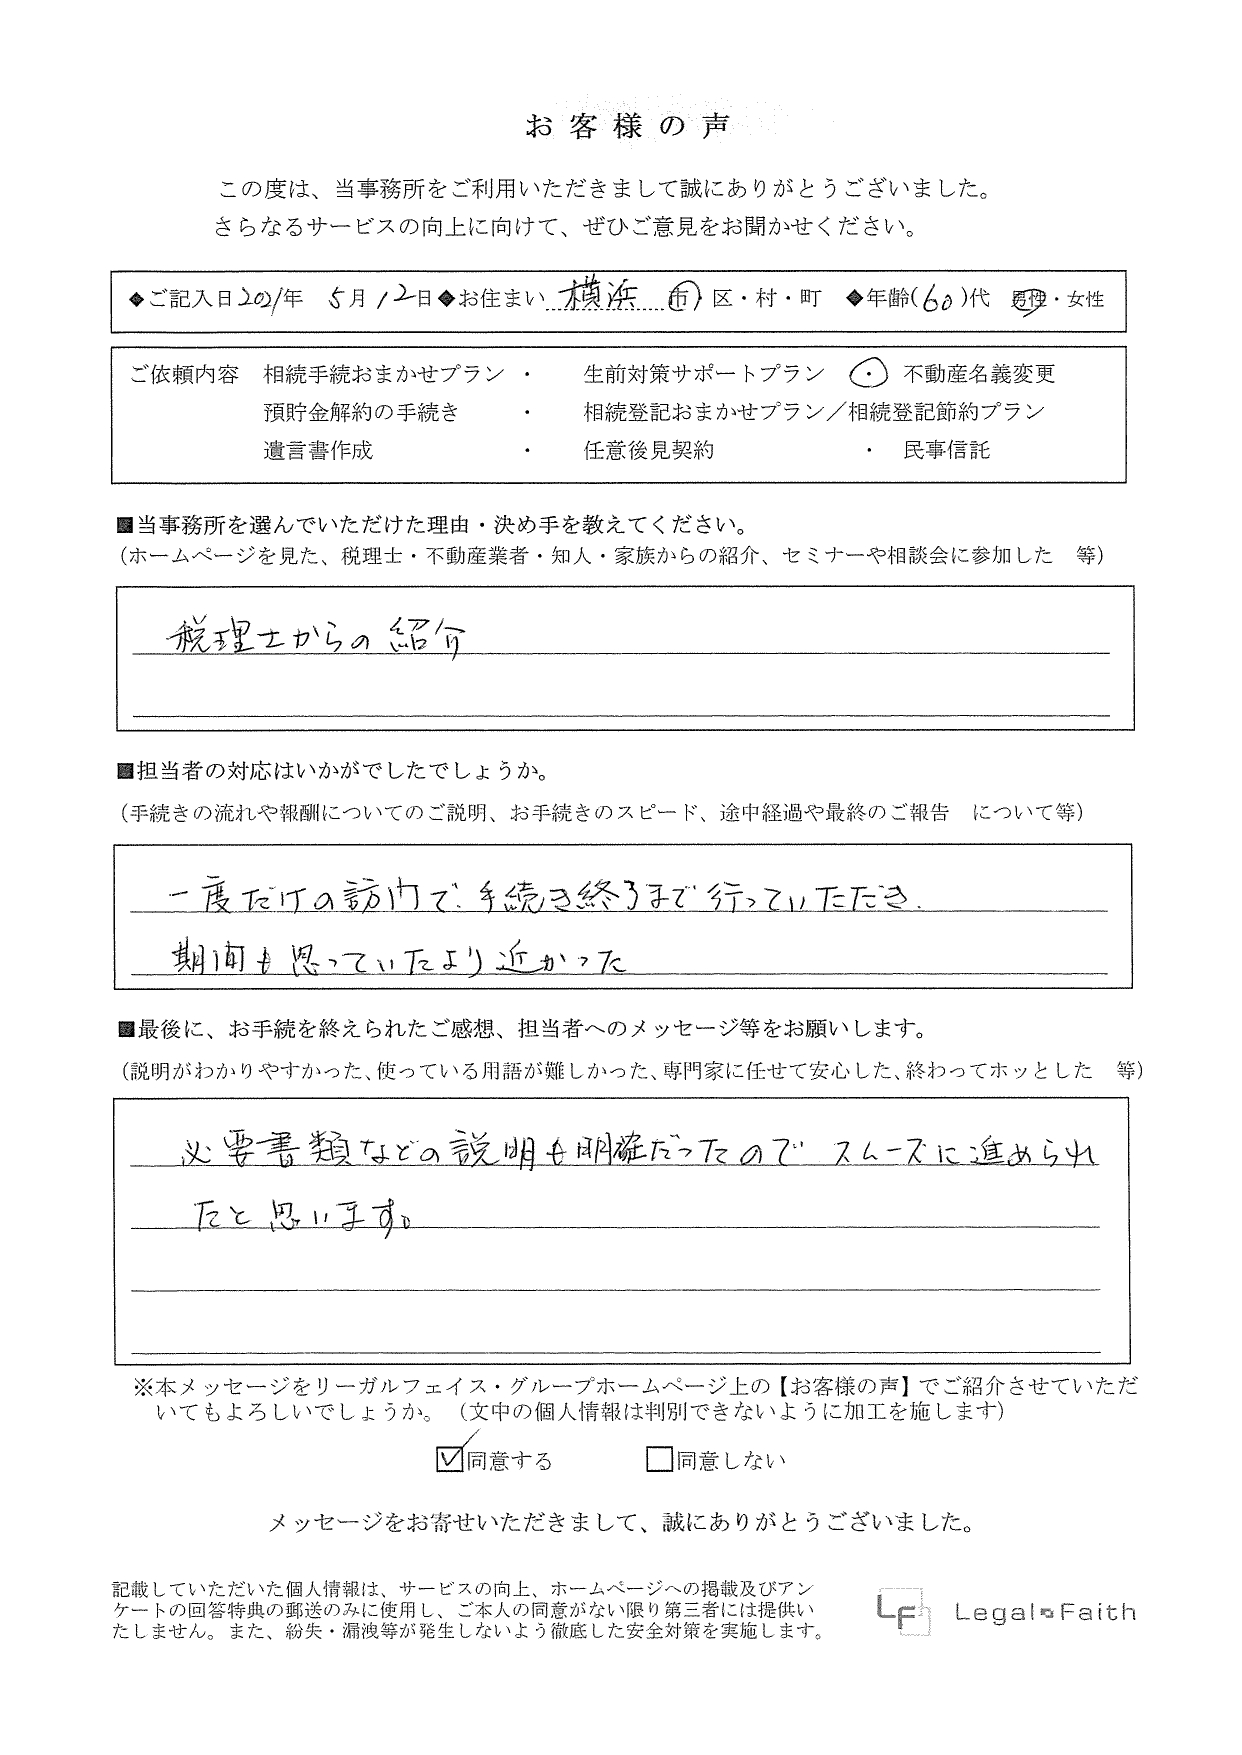 お客様の声
この度は、当事務所をご利用いただきまして誠にありがとうございました。
さらなるサービスの向上に向けて、ぜひご意見をお聞かせください。
◆ご記入日2021年 5月12日◆お住まい 横浜 市・区・村・町 ◆年齢(60)代 男性・女性
ご依頼内容 相続手続おまかせプラン ・ 生前対策サポートプラン ・ 不動産名義変更
預貯金解約の手続き ・ 相続登記おまかせプラン／相続登記節約プラン
遺言書作成 ・ 任意後見契約 ・ 民事信託
■当事務所を選んでいただけた理由・決め手を教えてください。
（ホームページを見た、税理士・不動産業者・知人・家族からの紹介、セミナーや相談会に参加した 等）
税理士からの紹介
■担当者の対応はいかがでしたでしょうか。
（手続きの流れや報酬についてのご説明、お手続きのスピード、途中経過や最終のご報告 について等）
一度だけの訪門で、手続き終了まで行っていただき、
期間も思っていたより近かった
■最後に、お手続を終えられたご感想、担当者へのメッセージ等をお願いします。
（説明がわかりやすかった、使っている用語が難しかった、専門家に任せて安心した、終わってホッとした 等）
必要書類などの説明も明確だったので スムーズに進められ
たと思います。
※本メッセージをリーガルフェイス・グループホームページ上の【お客様の声】でご紹介させていただ
いてもよろしいでしょうか。（文中の個人情報は判別できないように加工を施します）
☑同意する □同意しない
メッセージをお寄せいただきまして、誠にありがとうございました。
記載していただいた個人情報は、サービスの向上、ホームページへの掲載及びアン
ケートの回答特典の郵送のみに使用し、ご本人の同意がない限り第三者には提供い
たしません。また、紛失・漏洩等が発生しないよう徹底した安全対策を実施します。
LF Legal Faith